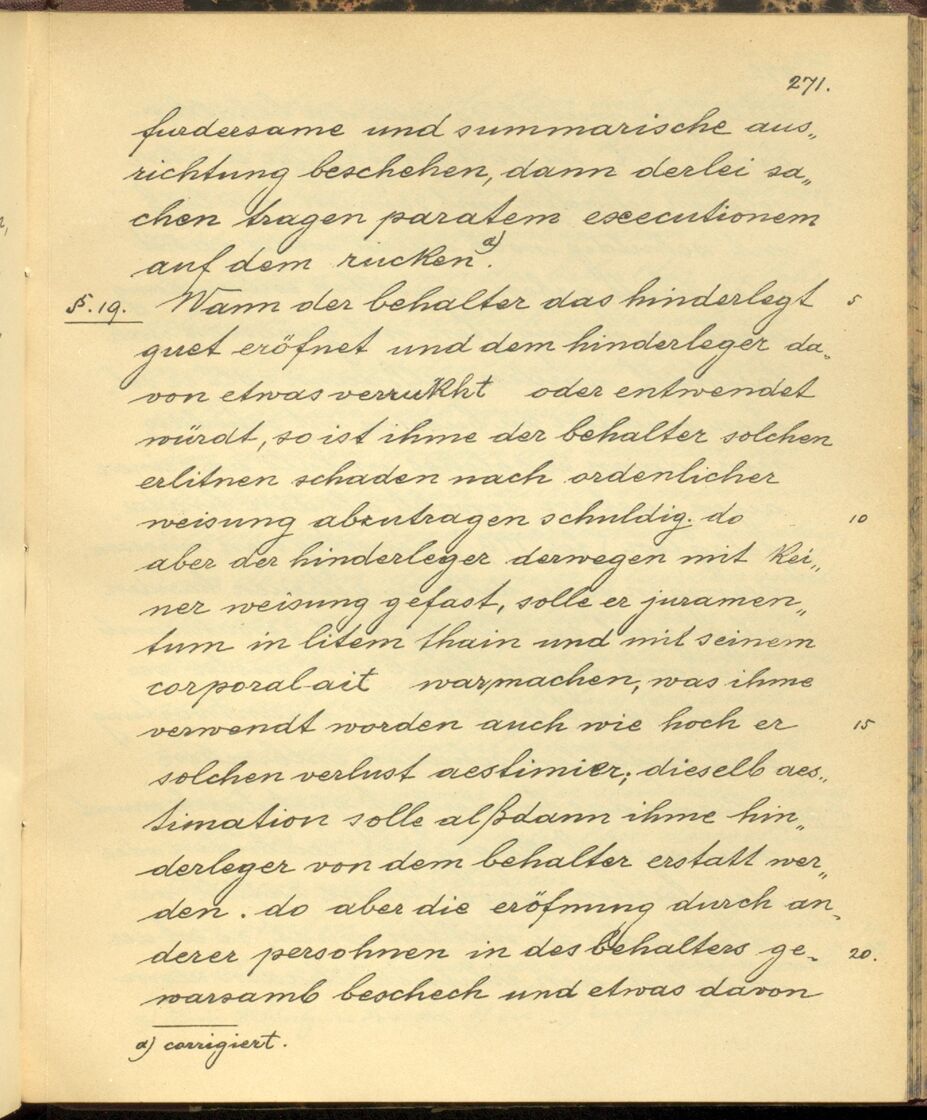 271.
furdersame und summarische aus„
richtung beschehen, dann derlei sa„
chen tragen paratem executionem
auf dem rucken a).
§. 19. Wann der behalter das hinderlegt 5
guet eröfnet und dem hinderleger da„
von etwas verrukht oder entwendet
würdt, so ist ihme der behalter solchen
erlitnen schaden nach ordenlicher
weisung abzutragen schuldig. do 10
aber der hinderleger derwegen mit kei„
ner weisung gefast, solle er juramen„
tum in litem thain und mit seinem
corporal ait warmachen, was ihme
verwendt worden auch wie hoch er 15
solchen verlust aestimier; dieselb aes„
timation solle alßdann ihme hin„
derleger von dem behalter erstatt wer„
den. do aber die eröfnung durch an„
derer persohnen in des behalters ge„ 20.
warsamb beschech und etwas davon
a) corrigiert.